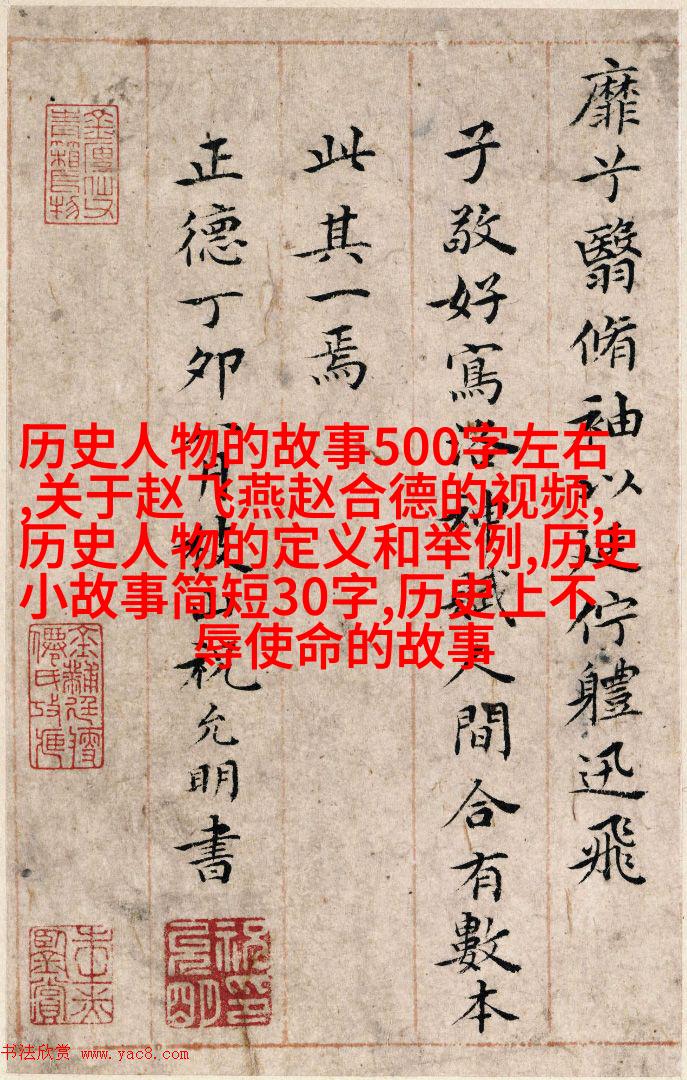 靡兮翳脩袖以延佇體迅飛
子敬好寫洛神賦人間合有數本
此其一焉
正德丁卯 月 山祝允明書
历史人物的故事500字左右
,关于赵飞燕赵合德的视频,
历史人物的定义和举例,历史
小故事简短30字,历史上不
辱使命的故事
书法欣赏 www.yac8.com